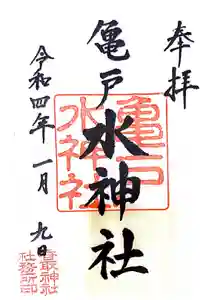 奉拝
亀戸水神社
令和四年一月九日
亀戸
水神社
香取神社
社務所印